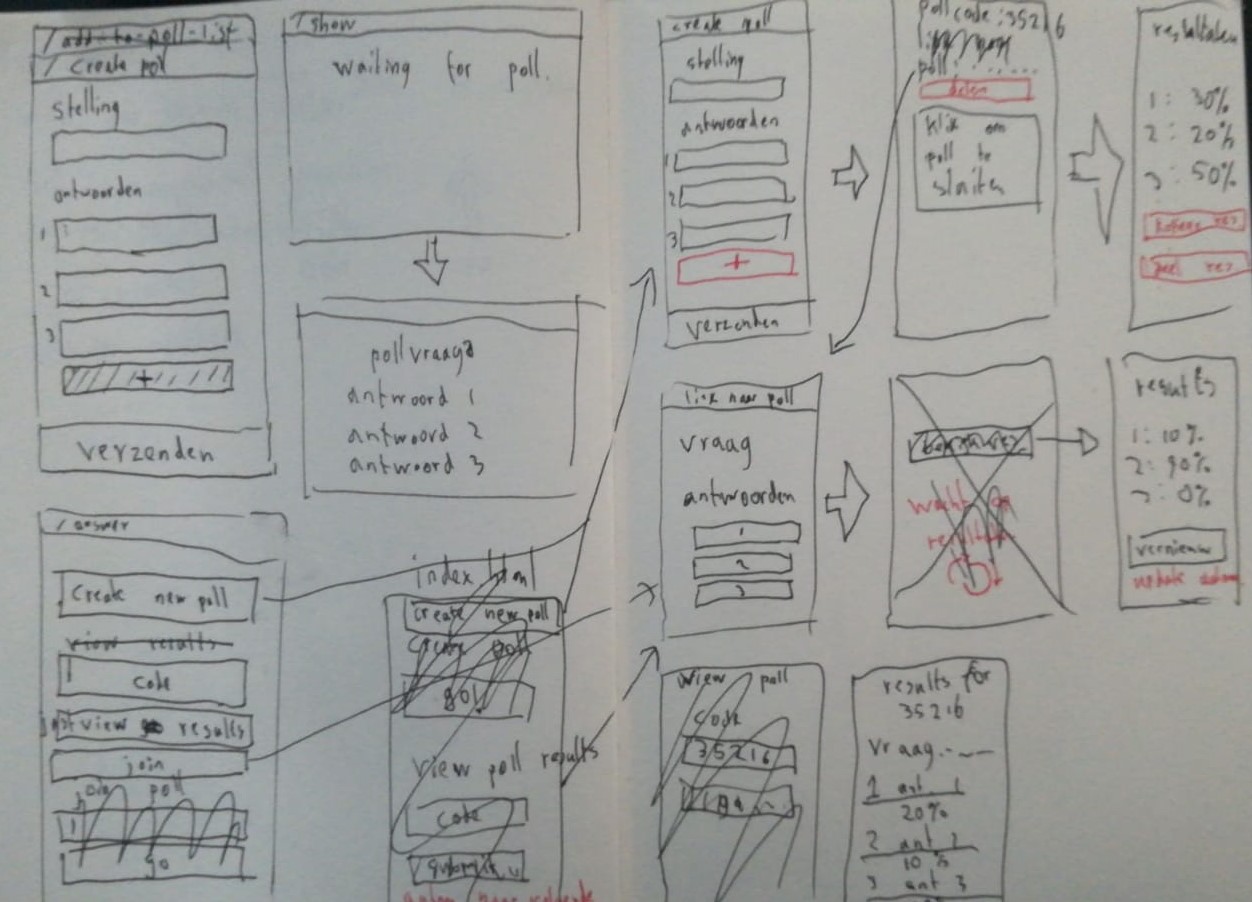 / add-to-poll-list
/ create poll
stelling
antwoorden
1
2
3
+
verzenden
/ show
waiting for poll.
pollvraag
antwoord 1
antwoord 2
antwoord 3
/ answer
Create new poll
view results
code
view results
join
join poll
go
index html
create new poll
create poll
go!
view poll results
code
create poll
stelling
antwoorden
1
2
3
+
verzenden
poll code: 35216
poll: ......
delen
Klik om
poll te
sluiten
resultaten
1: 30%
2: 20%
3: 50%
link naar poll
vraag
antwoorden
1
2
3
wacht op
results
1: 10%
2: 90%
3: 0%
vernieuw
view poll
code
35216
results for
35216
vraag.-~-
1 ant. 1
20%
2 ant 2
10%
3 ant 3